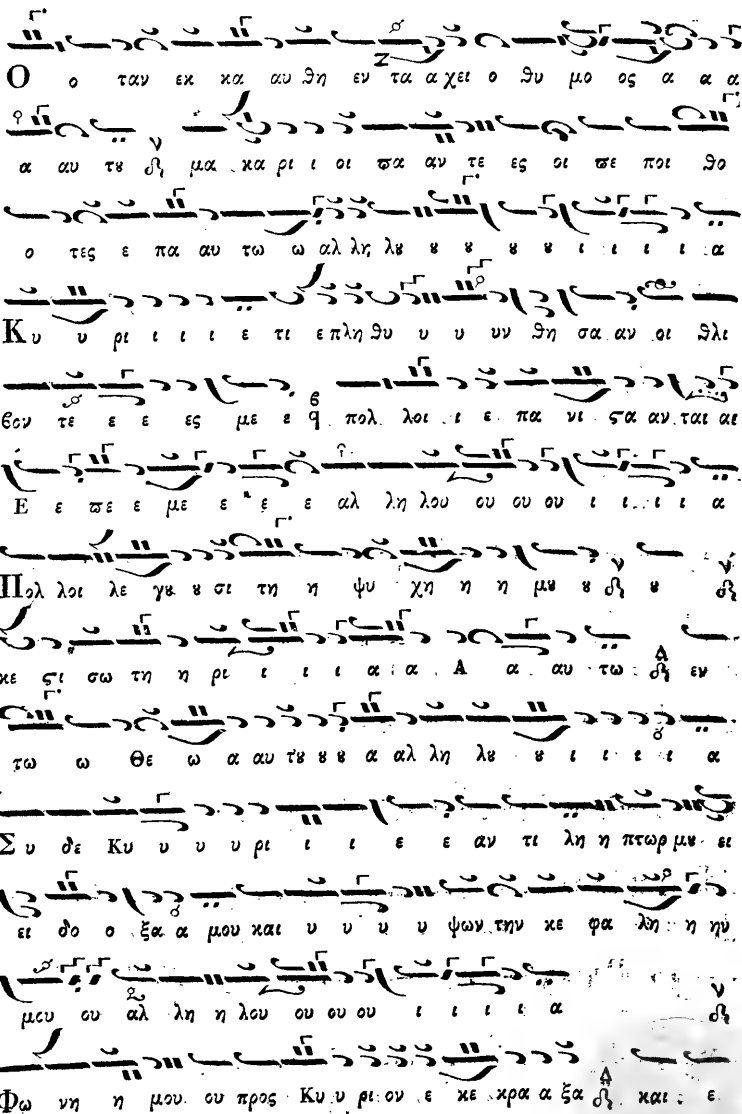 Ο ο ταν εκ κα αυ θη εν τα α χει ο θυ μο ος α α α
α αυ τȣ μα κα ρι ι οι πα αν τε ες οι πε ποι θο
ο τες ε πα αυ τω ω αλ λη λȣ ȣ ȣ ȣ ȣ ι ι ι ι α
Κυ υ ρι ι ι ι ε τι επλη θυ υ υ υν θη σα αν οι θλι
βον τε ε ε ες με ε πολ λοι ι ε πα νι ϛα αν ται αι
Ε ε πε ε με ε ε ε αλ λη λου ου ου ου ι ι ι ι α
Πολ λοι λε γȣ ȣ σι τη η ψυ χη η η μȣ ȣ ȣ
κε ϛι σω τη η ρι ι ι ι α α α Α α αυ τω εν
τω ω Θε ω α αυ τȣ ȣ ȣ α αλ λη λȣ ȣ ι ι ι ι α
Συ δε Κυ υ υ υ ρι ι ι ε ε αν τι λη η πτωρ μȣ ει
ει δο ο ξα α μου και υ υ υ υ ψων την κε φα λη η ην
μου ου αλ λη η λου ου ου ου ι ι ι ι α
Φω νη η μου ου προς Κυ υ ρι ον ε κε κρα α ξα και ε